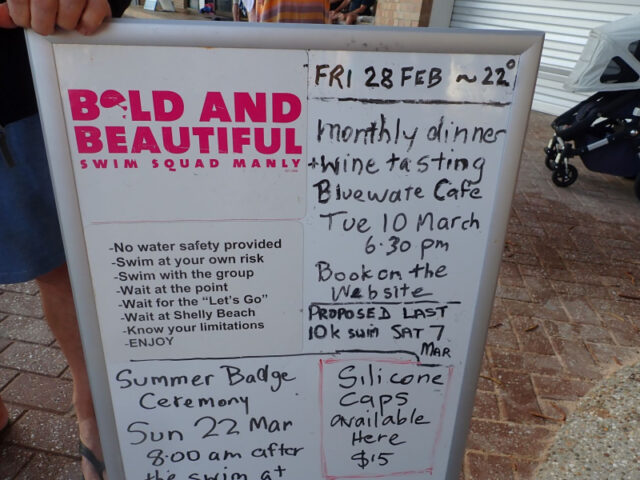 BOLD AND
BEAUTIFUL
SWIM SQUAD MANLY
-No water safety provided
-Swim at your own risk
-Swim with the group
-Wait at the point
-Wait for the "Let's Go"
-Wait at Shelly Beach
-Know your limitations
-ENJOY
FRI 28 FEB ~22°
Monthly dinner
+wine tasting
Bluewate Cafe
Tue 10 March
6.30 pm
Book on the
Website
PROPOSED LAST
10k swim SAT 7
MAR
Summer Badge
Ceremony
Sun 22 Mar
8:00 am after
the swim at
Silicone
Caps
available
Here
$15